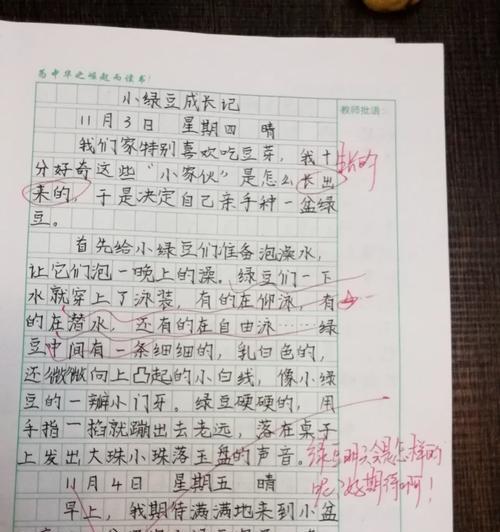 为中华之崛起而读书!
小绿豆成长记
教师批语:
11月3日 星期四 晴
我们家特别喜欢吃豆芽,我十
分好奇这些“小家伙”是怎么长出
长的
来的,于是决定自己亲手种一盆绿
豆。
首先给小绿豆们准备泡澡水,
让它们泡一晚上的澡。绿豆们一下
水就穿上了泳装,有的在仰泳,有
的在潜水,还有的在自由泳……绿
豆中间有一条细细的,乳白色的,
还微微向上凸起的小白线,像小绿
豆的一瓣小门牙。绿豆硬硬的,用
手指一掐就蹦出去老远,落在桌子
上发出大珠小珠落玉盘的声音。
绿豆明天会是怎样的
呢?好期待啊!
11月4日 星期五 晴
早上,我期待满满地来到小盆